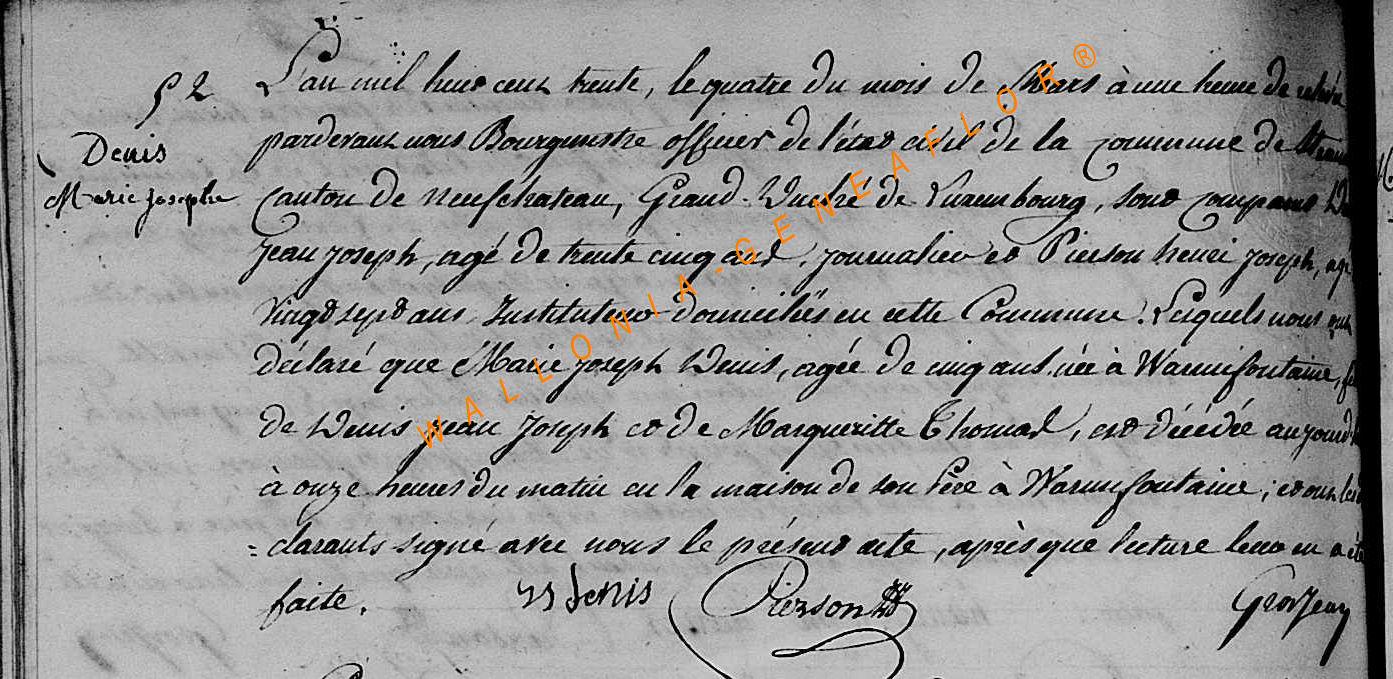 52
Denis
Marie Joseph
L'an mil huit cent trente, le quatre du mois de Mars à une heure de
pardevant nous Bourgmestre officier de l'état civil de la commune de
canton de neufchateau, Grand-Duché de Luxembourg, sont comparus
Jean Joseph, agé de trente cinq ans, journalier et Pierson henri Joseph,
Vingt sept ans, Instituteur domiciliés en cette Commune. Lesquels nous ont
déclaré que Marie Joseph Denis, agée de cinq ans, née à Warmifontaine,
de Denis Jean Joseph et de Margueritte Thomas, est décédée aujourd
à onze heures du matin en la maison de son Père à Warmifontaine; et ont les
=clarants signé avec nous le présent acte, après que lecture leur en a été
faite.
JJ Denis
Pierson
Grosjean
WALLONIA-GENEAFLOR®